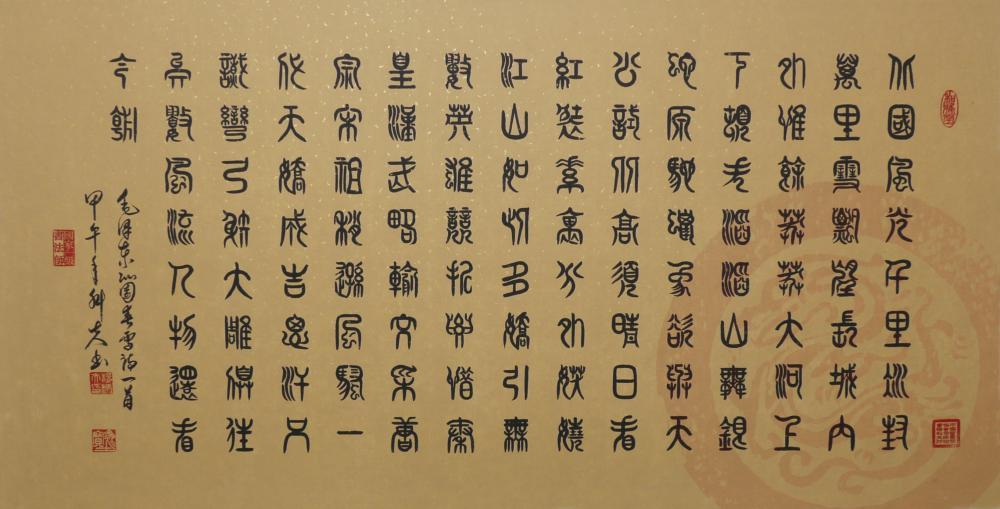 北國風光千里冰封
萬里雪飄望長城內
外惟餘莽莽大河上
下頓失滔滔山舞銀
蛇原馳蠟象欲與天
公試比高須晴日看
紅裝素裹分外妖嬈
江山如此多嬌引無
數英雄競折腰惜秦
皇漢武略輸文采唐
宗宋祖稍遜風騷一
代天嬌成吉思汗只
識彎弓射大雕俱往
矣數風流人物還看
今朝
毛澤東沁園春雪詞一首
甲午年書